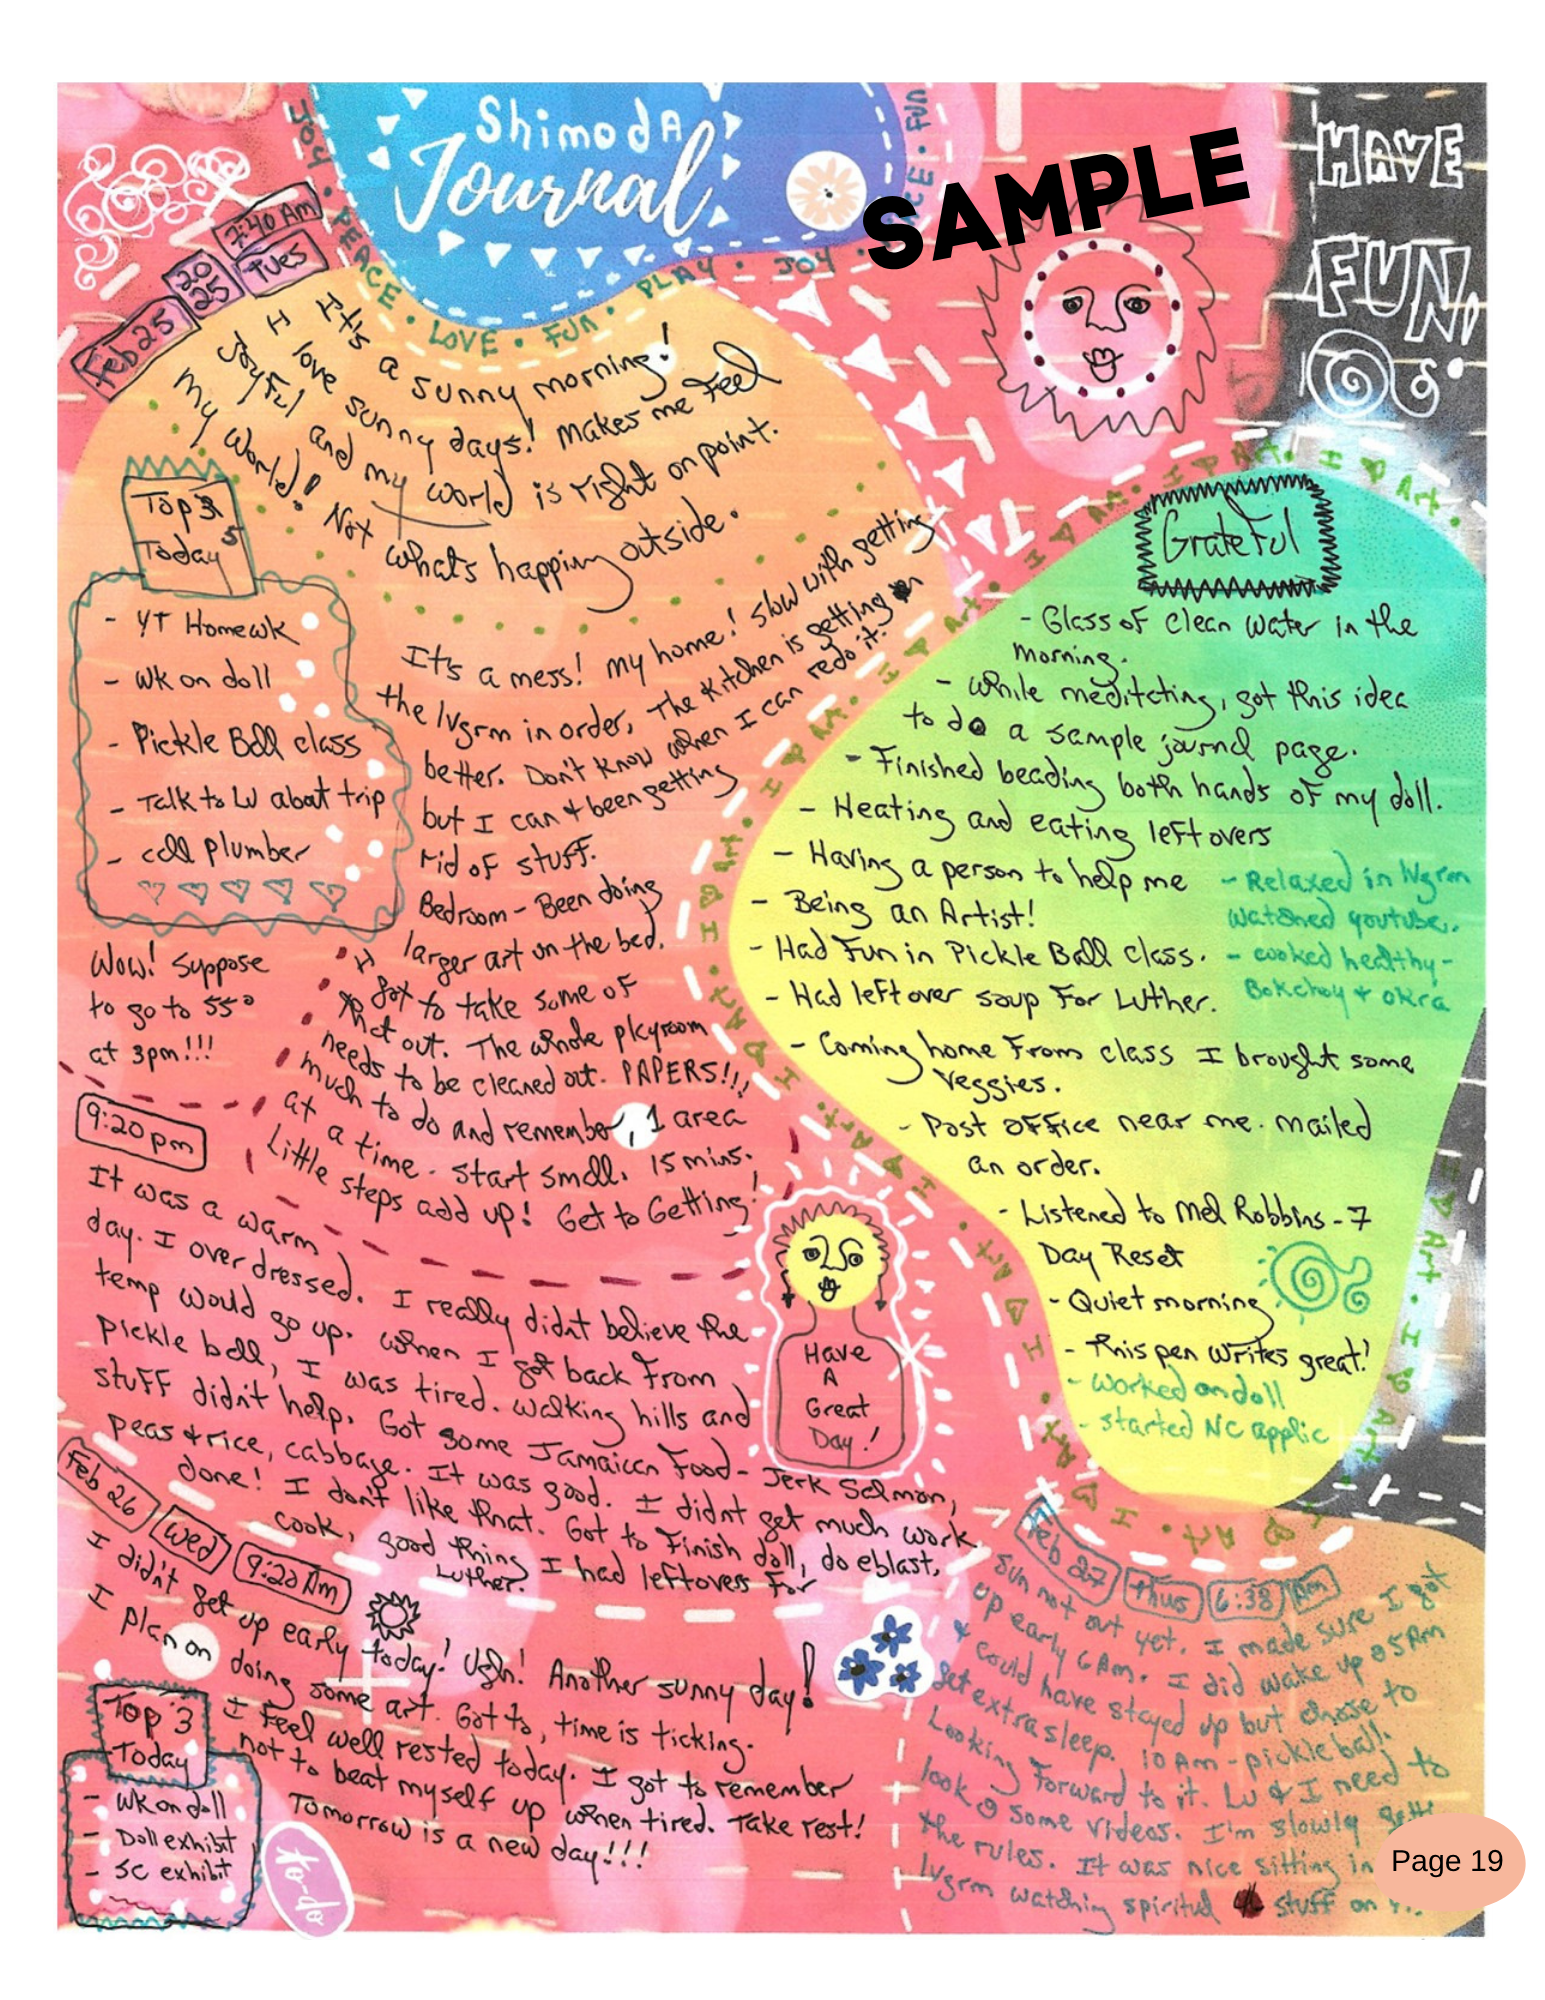 ShimodA
Journal
SAMPLE
HAVE
FUN!
JOY • PEACE • LOVE • FUN • PLAY • JOY •
• FUN
7:40 Am
Feb 25
20
25
Tues
It's a sunny morning!
I love sunny days! Makes me feel
joyful and my world is right on point.
My World! Not what's happing outside.
Top 3 5
Today
- YT Homewk
- Wk on doll
- Pickle Ball class
- Talk to LU about trip
- call plumber
It's a mess! My home! Slow with getting
the lvgrm in order, The Kitchen is getting
better. Don't know when I can redo it.
but I can & been getting
rid of stuff.
Bedroom - Been doing
larger art on the bed.
I got to take some of
that out. The whole playroom
needs to be cleaned out. PAPERS!!,
much to do and remember, 1 area
at a time. Start small. 15 mins.
Little steps add up! Get to Getting!
Wow! Suppose
to go to 55°
at 3pm!!!
9:20 pm
It was a warm
day. I over dressed. I really didnt believe the
temp would go up. When I got back from
pickle ball, I was tired. Walking hills and
stuff didn't help. Got some Jamaican Food - Jerk Salmon,
peas & rice, cabbage. It was good. I didnt get much work
done! I don't like that. Got to finish doll, do eblast,
cook, good thing I had leftovers for
Luther.
Have
A
Great
Day!
Grateful
- Glass of clean water in the
morning.
- While meditating, got this idea
to do a sample journal page.
- Finished beading both hands of my doll.
- Heating and eating leftovers
- Having a person to help me
- Being an Artist!
- Had Fun in Pickle Ball class.
- Had leftover soup for Luther.
- Relaxed in lvgrm
watched youtube.
- cooked healthy -
Bokchoy + okra
- Coming home from class I brought some
veggies.
- Post office near me. mailed
an order.
- Listened to Mel Robbins - 7
Day Reset
- Quiet morning
- This pen writes great!
- worked on doll
- started NC applic
I Art • I Art • I Art • I Art • I Art • I Art • I Art
Feb 26
Wed
9:20 Am
I didn't get up early today! Ugh! Another sunny day!
I plan on doing some art. Got to, time is ticking.
I feel well rested today. I got to remember
not to beat myself up when tired. Take rest!
Tomorrow is a new day!!!
Top 3
Today
- Wk on doll
- Doll exhibit
- SC exhibit
to-do
Feb 27
Thus
6:38
Am
Sun not out yet. I made sure I got
up early 6 Am. I did wake up @ 5 Am
& could have stayed up but chose to
get extra sleep. 10 Am - pickle ball.
Looking forward to it. LU & I need to
look @ some videos. I'm slowly
the rules. It was nice sitting in
lvgrm watching spiritual stuff on
Page 19